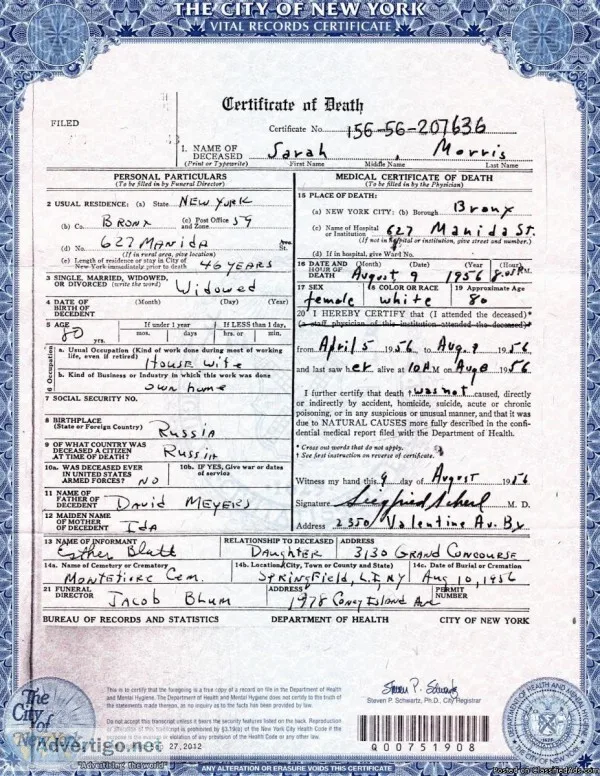 THE CITY OF NEW YORK
VITAL RECORDS CERTIFICATE
Certificate of Death
FILED
Certificate No. 156-56-207636
1. NAME OF DECEASED Sarah Morris
(Print or Typewrite) First Name Middle Name Last Name
PERSONAL PARTICULARS
(To be filled in by Funeral Director)
2 USUAL RESIDENCE: (a) State NEW YORK
(b) Co. BRONX (c) Post Office and Zone 59
(d) No. 627 MANIDA Ave. St.
(If in rural area, give location)
(e) Length of residence or stay in City of New York immediately prior to death 46 YEARS
3 SINGLE, MARRIED, WIDOWED, OR DIVORCED (write the word) Widowed
4 DATE OF BIRTH OF DECEDENT (Month) (Day) (Year)
5 AGE 80 yrs. If under 1 year mos. days If LESS than 1 day, hrs. or min.
6 Occupation
a. Usual Occupation (Kind of work done during most of working life, even if retired) House wife
b. Kind of Business or Industry in which this work was done own home
7 SOCIAL SECURITY NO.
8 BIRTHPLACE (State or Foreign Country) Russia
9 OF WHAT COUNTRY WAS DECEASED A CITIZEN AT TIME OF DEATH? Russia
10a. WAS DECEASED EVER IN UNITED STATES ARMED FORCES? NO
10b. IF YES, Give war or dates of service
11 NAME OF FATHER OF DECEDENT DAVID MEYERS
12 MAIDEN NAME OF MOTHER OF DECEDENT IDA
MEDICAL CERTIFICATE OF DEATH
(To be filled in by the Physician)
15 PLACE OF DEATH:
(a) NEW YORK CITY: (b) Borough Bronx
(c) Name of Hospital or Institution 627 Manida St.
(If not in hospital or institution, give street and number.)
(d) If in hospital, give Ward No.
16 DATE AND HOUR OF DEATH (Month) (Date) (Year) (Hour) August 9 1956 8:05 PM.
17 SEX female 18 COLOR OR RACE white 19 Approximate Age 80
20 I HEREBY CERTIFY that (I attended the deceased)*
(a staff physician of this institution attended the deceased)*
from April 5 1956 to Aug. 9 1956
and last saw her alive at 10 AM on Aug 8 1956
I further certify that death † was not caused, directly
or indirectly by accident, homicide, suicide, acute or chronic
poisoning, or in any suspicious or unusual manner, and that it was
due to NATURAL CAUSES more fully described in the confi-
dential medical report filed with the Department of Health.
* Cross out words that do not apply.
† See first instruction on reverse of certificate.
Witness my hand this 9 day of August 1956
Signature M. D.
Address 2350 Valentine Av. Bx
13 NAME OF INFORMANT Esther Blatt RELATIONSHIP TO DECEASED DAUGHTER ADDRESS 3130 GRAND CONCOURSE
14a. Name of Cemetery or Crematory MONTEFIORE CEM. 14b. Location (City, Town or County and State) SPRINGFIELD, L.I. NY 14c. Date of Burial or Cremation Aug 10, 1956
21 FUNERAL DIRECTOR JACOB BLUM ADDRESS 1978 CONEY ISLAND AVE PERMIT NUMBER
BUREAU OF RECORDS AND STATISTICS DEPARTMENT OF HEALTH CITY OF NEW YORK
This is to certify that the foregoing is a true copy of a record on file in the Department of Health
and Mental Hygiene. The Department of Health and Mental Hygiene does not certify to the truth of
the statements made thereon, as no inquiry as to the facts has been provided by law.
Do not accept this transcript unless it bears the security features listed on the back. Reproduction
or alteration of this transcript is prohibited by §3.19(b) of the New York City Health Code if the
purpose is the evasion or violation of any provision of the Health Code or any other law.
Steven P. Schwartz
Steven P. Schwartz, Ph.D., City Registrar
Q00751908
The City of New York
27, 2012
Advertigo.net
"Advertising the world"
ANY ALTERATION OR ERASURE VOIDS THIS CERTIFICATE
Posted on ClassifiedAds.com